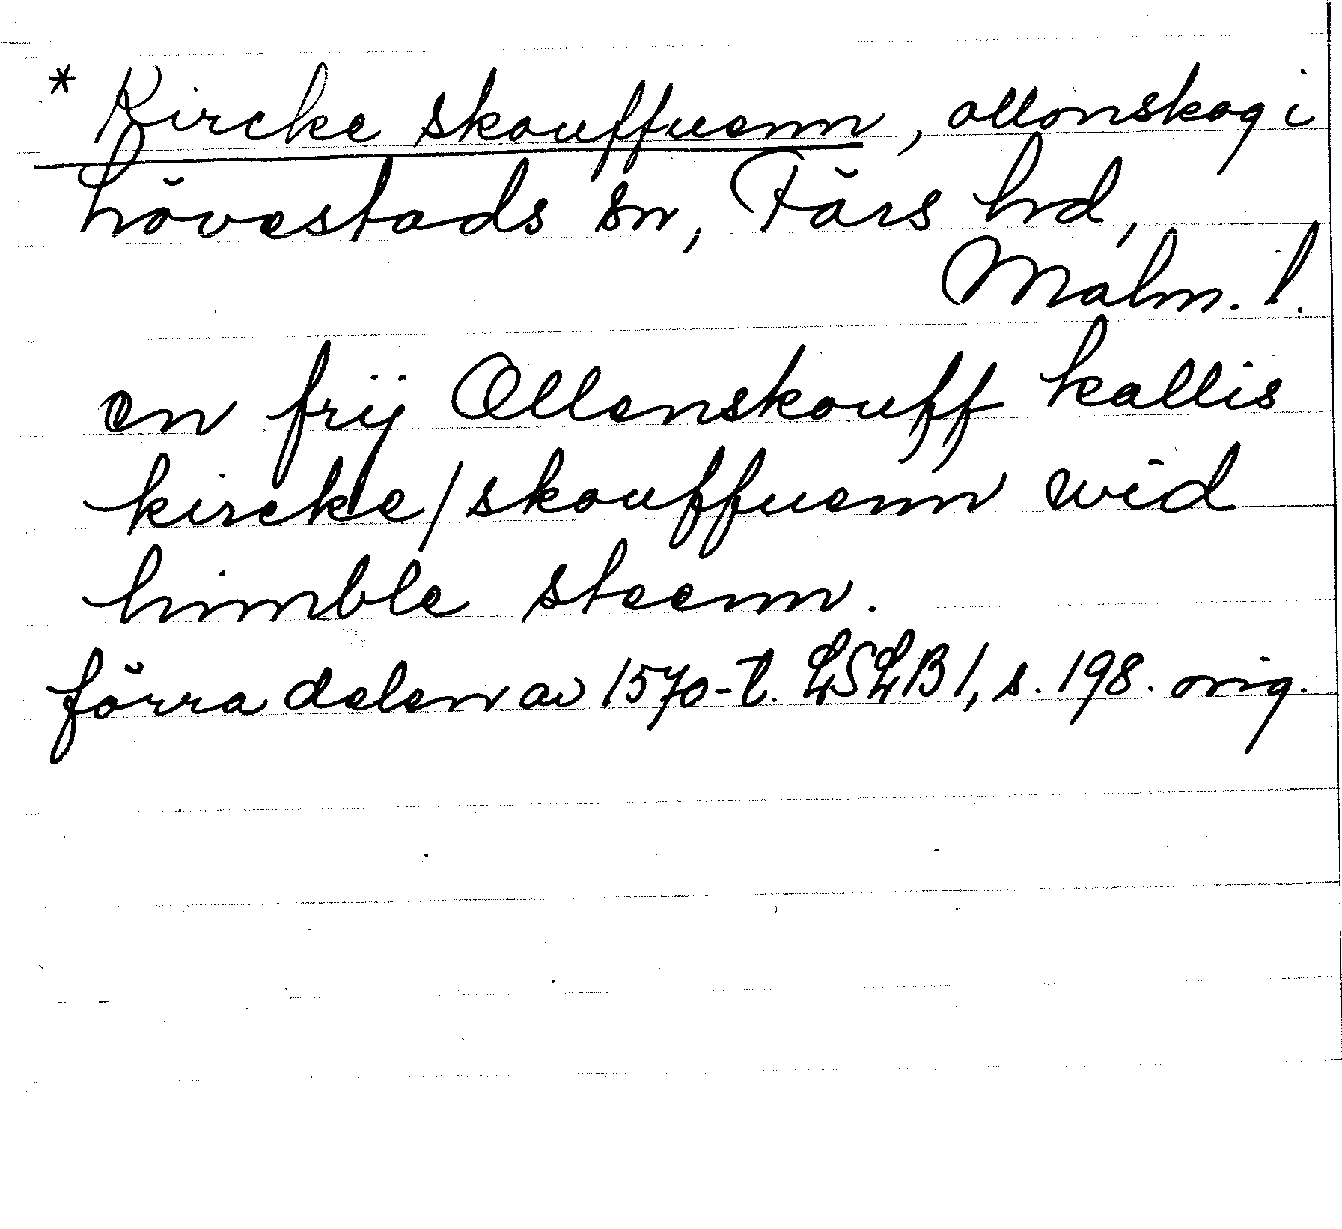 * Kircke skouffuenn, ollonskog i
hövestads sn, Färs hd,
Malm. l.
en frij Ollenskouff kallis
kircke/skouffuenn wid
himble steenn.
förra delen av 1570-t. LSLB 1, s. 198. orig.